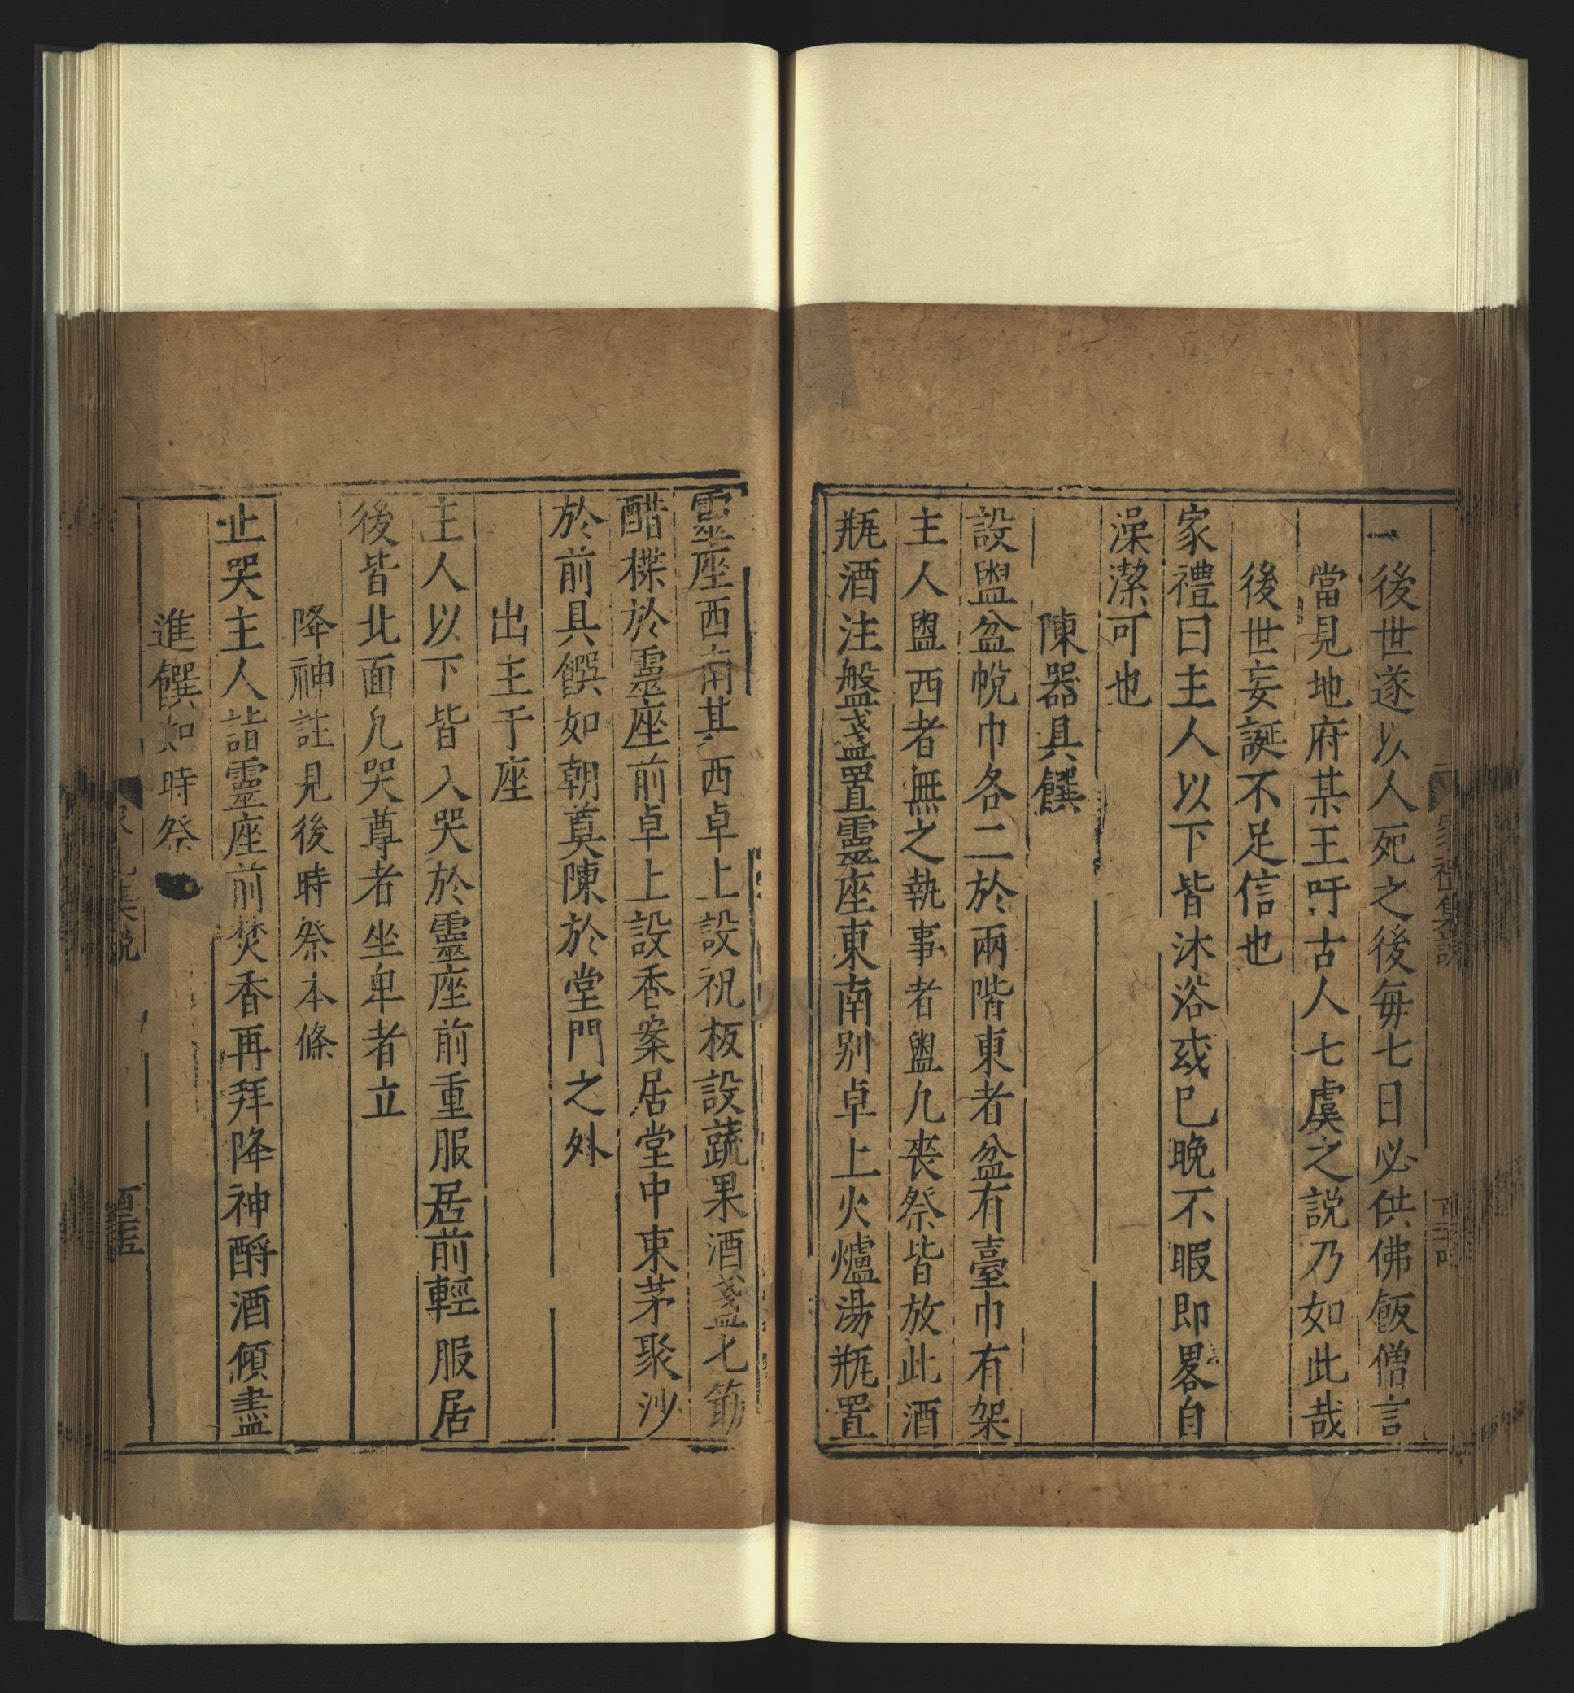 後世遂以人死之後每七日必供佛飯僧言
當見地府某王吁古人七虞之説乃如此哉
後世妄誕不足信也
家禮曰主人以下皆沐浴或已晚不暇即畧自
澡潔可也
陳器具饌
設盥盆帨巾各二於兩階東者盆有臺巾有架
主人盥西者無之執事者盥凢喪祭皆放此酒
瓶酒注盤盞置靈座東南别卓上火爐湯瓶置
靈座西南其西卓上設祝板設蔬果酒盞匕筯
醋楪於靈座前卓上設香案居堂中束茅聚沙
於前具饌如朝奠陳於堂門之外
出主于座
主人以下皆入哭於靈座前重服居前輕服居
後皆北面凢哭尊者坐卑者立
降神註見後時祭本條
止哭主人詣靈座前焚香再拜降神酹酒傾盡
進饌如時祭
集説